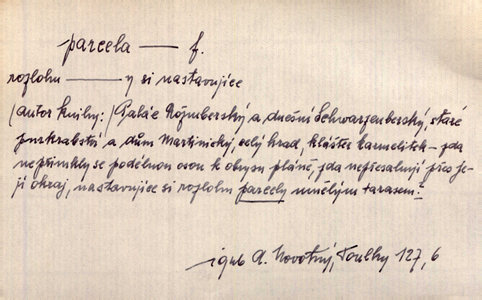 parcela — f.
rozlohu — y si nastavujíce
/autor knihy:/ Palác Rožmberský a dnešní Schwarzenberský, staré
purkrabství a dům Martinický, celý hrad, klášter karmelitek – zda
nepřimkly se podélnou osou k obrysu pláně, zda nepřesahují přes je-
jí okraj, nastavujíce si rozlohu parcely umělým tarasem?
A. Novotný, Toulky 127, 6